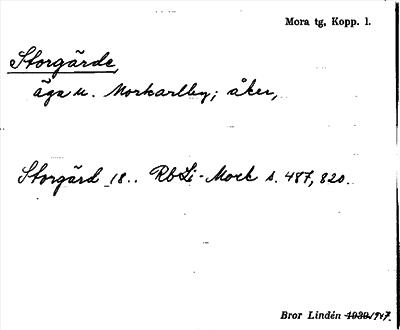 Mora tg, Kopp. l.
Storgärde,
äga u. Morkarlby; åker,
Storgärd 18.. RbLi-Mork s. 487, 820.
Bror Lindén 1939/947.